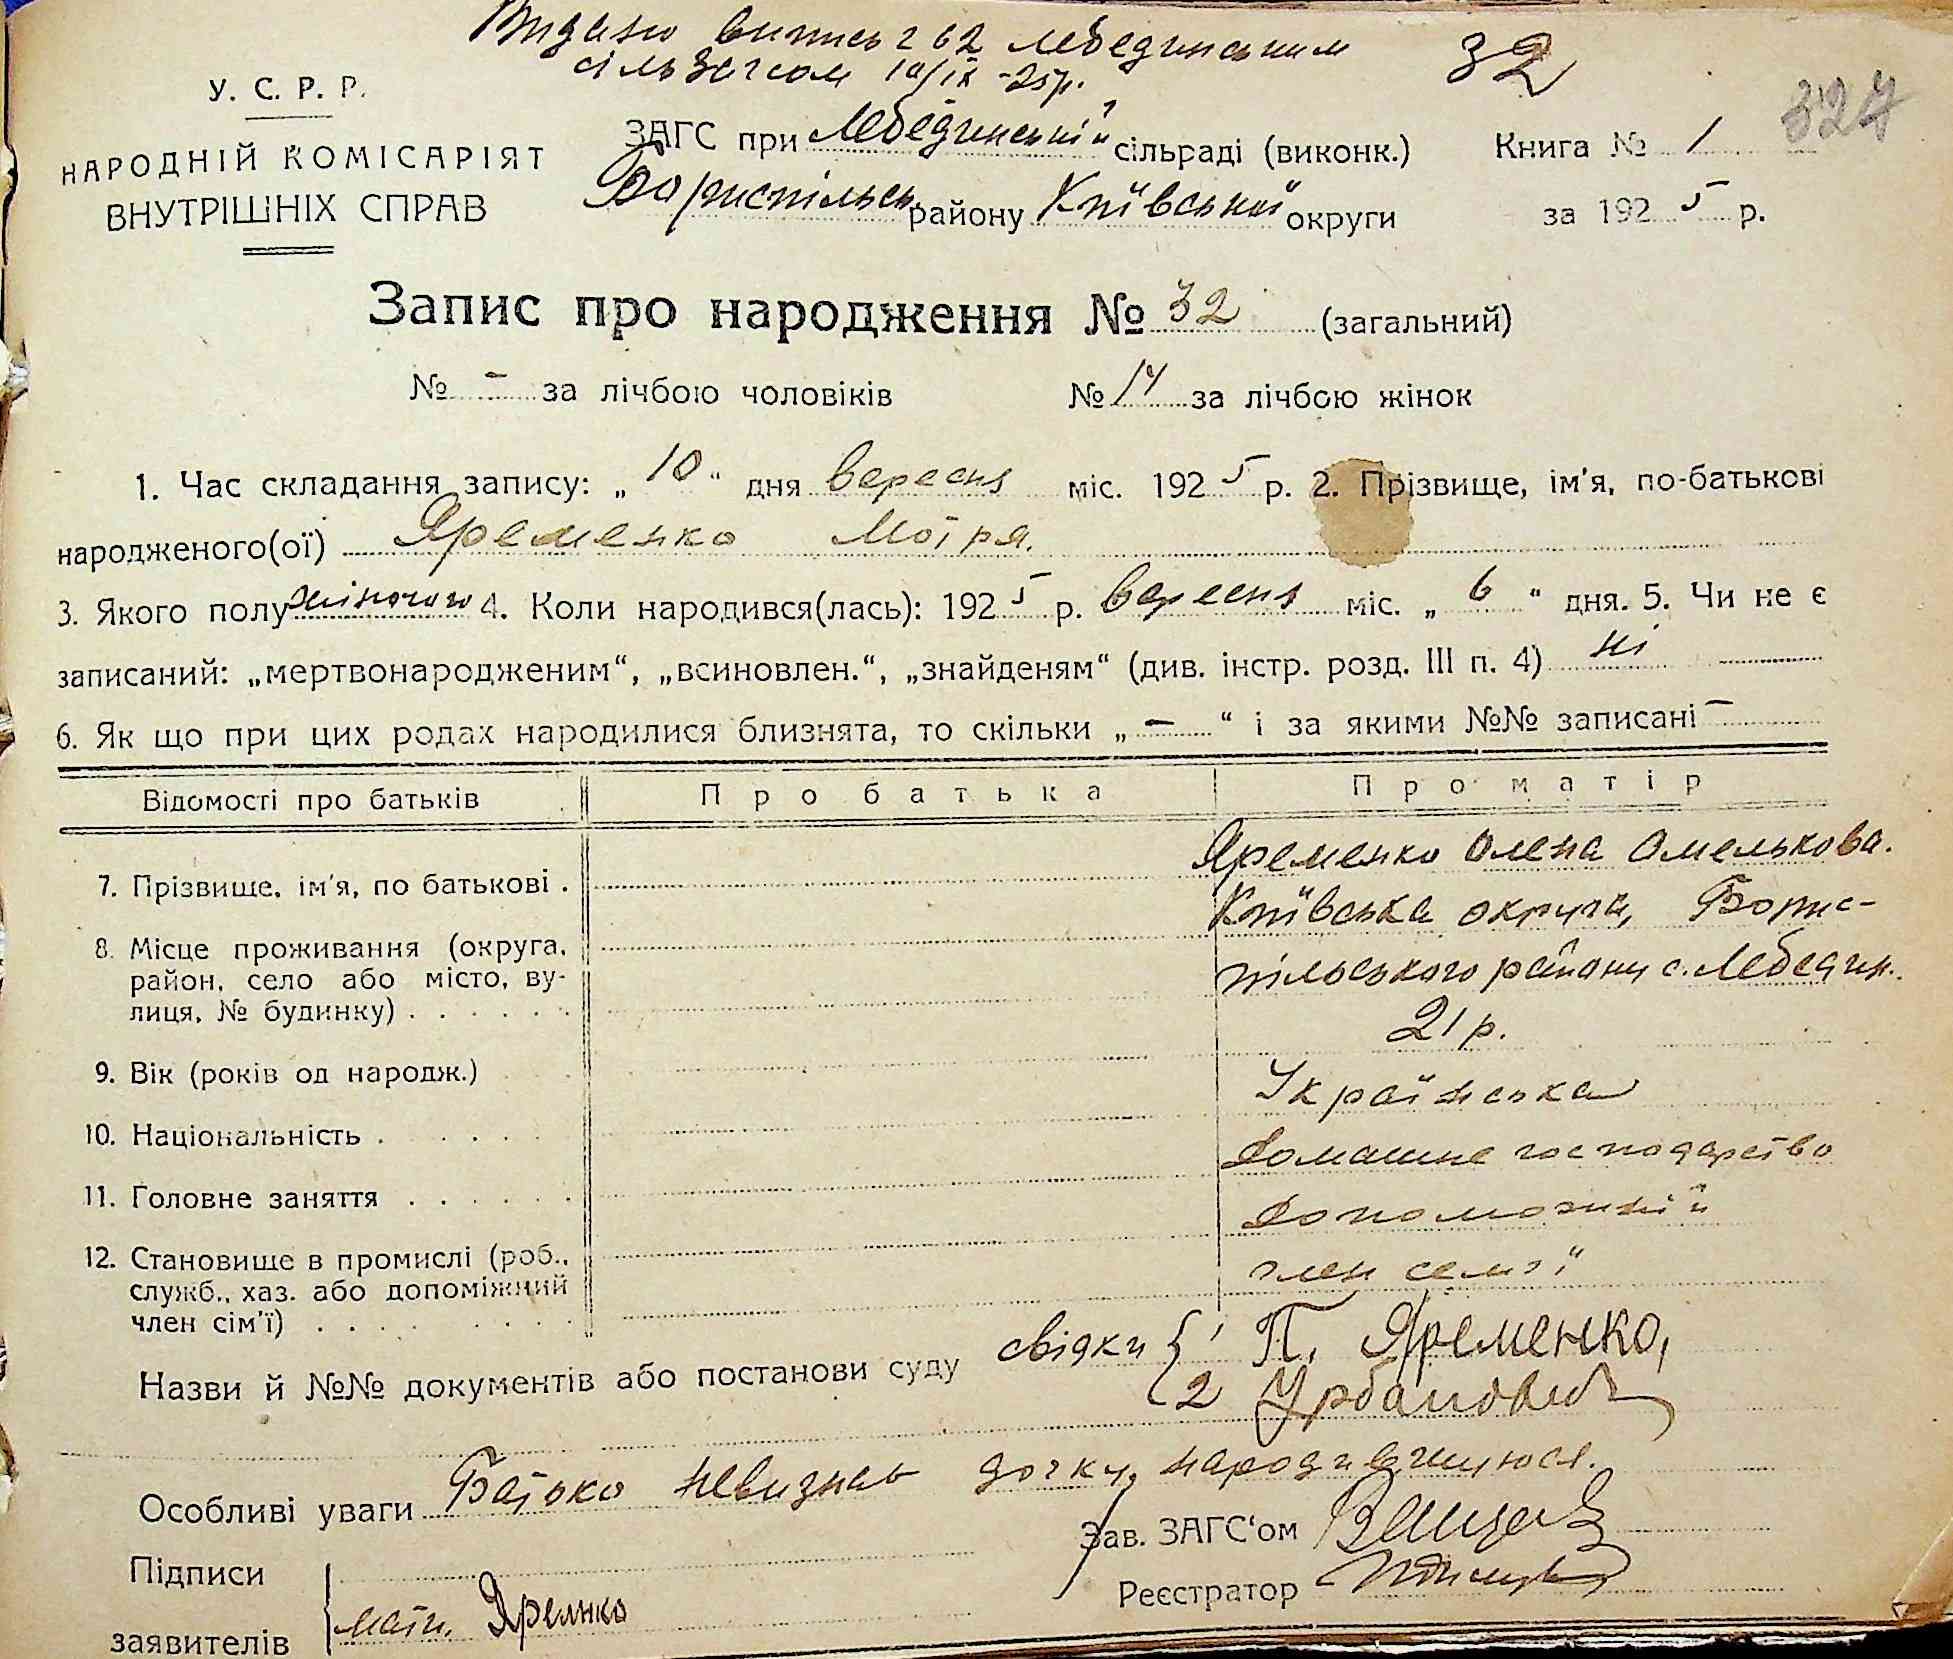 Видано випись № 62 Лебединським
сільЗагсом 10/IX -25р.
32
327
У. С. Р. Р.
НАРОДНІЙ КОМІСАРІЯТ
ВНУТРІШНІХ СПРАВ
ЗАГС при Лебединській сільраді (виконк.)
Бориспільськ району Київської округи
Книга № 1
за 1925 р.
Запис про народження № 32 (загальний)
№ - за лічбою чоловіків № 14 за лічбою жінок
1. Час складання запису: „ 10 “ дня вересня міс. 1925 р. 2. Прізвище, ім'я, по-батькові
народженого(ої) Яременко Мотря.
3. Якого полу жіночого 4. Коли народився(лась): 1925 р. вересня міс. „ 6 “ дня. 5. Чи не є
записаний: „мертвонародженим“, „всиновлен.“, „знайденям“ (див. інстр. розд. III п. 4) ні
6. Як що при цих родах народилися близнята, то скільки „ — “ і за якими №№ записані —
Відомості про батьків Про батька Про матір
7. Прізвище, ім'я, по батькові . Яременко Олена Омелькова.
8. Місце проживання (округа, Київська округа, Борис-
район, село або місто, ву- пільського району с. Лебедин.
лиця, № будинку) . . . . . .
9. Вік (років од народж.) 21 р.
10. Національність . . . . . Українська
11. Головне заняття . . . . . . Домашнє господарство
12. Становище в промислі (роб., Допоможній
служб., хаз. або допоміжний член семʼї
член сім'ї) . . . . . . . . .
Назви й №№ документів або постанови суду свідки { 1 П. Яременко,
2 Урбанович
Особливі уваги Батько невизнав дочку, народившуюся.
Зав. ЗАГС'ом
Підписи
Реєстратор
заявителів мати. Яремнко